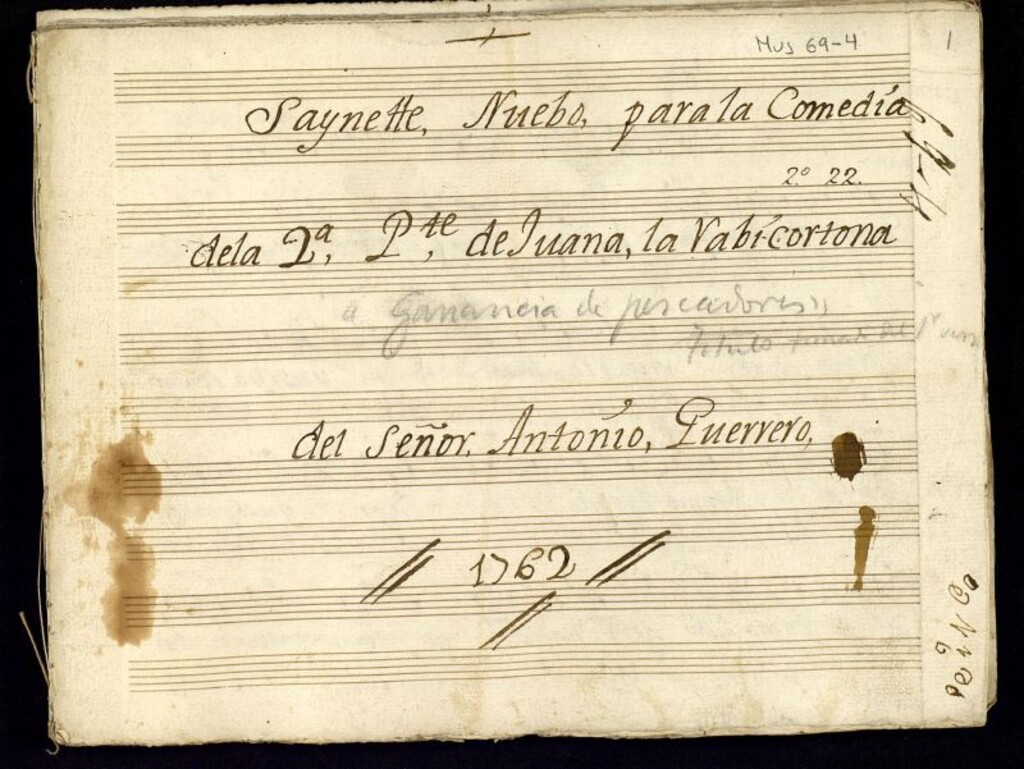 Mus 69-4
1
Saynette, Nuebo, para la Comedia
2º 22.
dela 2ª, Pte, de Juana, la Rabi-cortona
a Ganancia de pescadores"
Titulo tomado del 1r verso
del Señor, Antonio, Guerrero,
1762
69-4